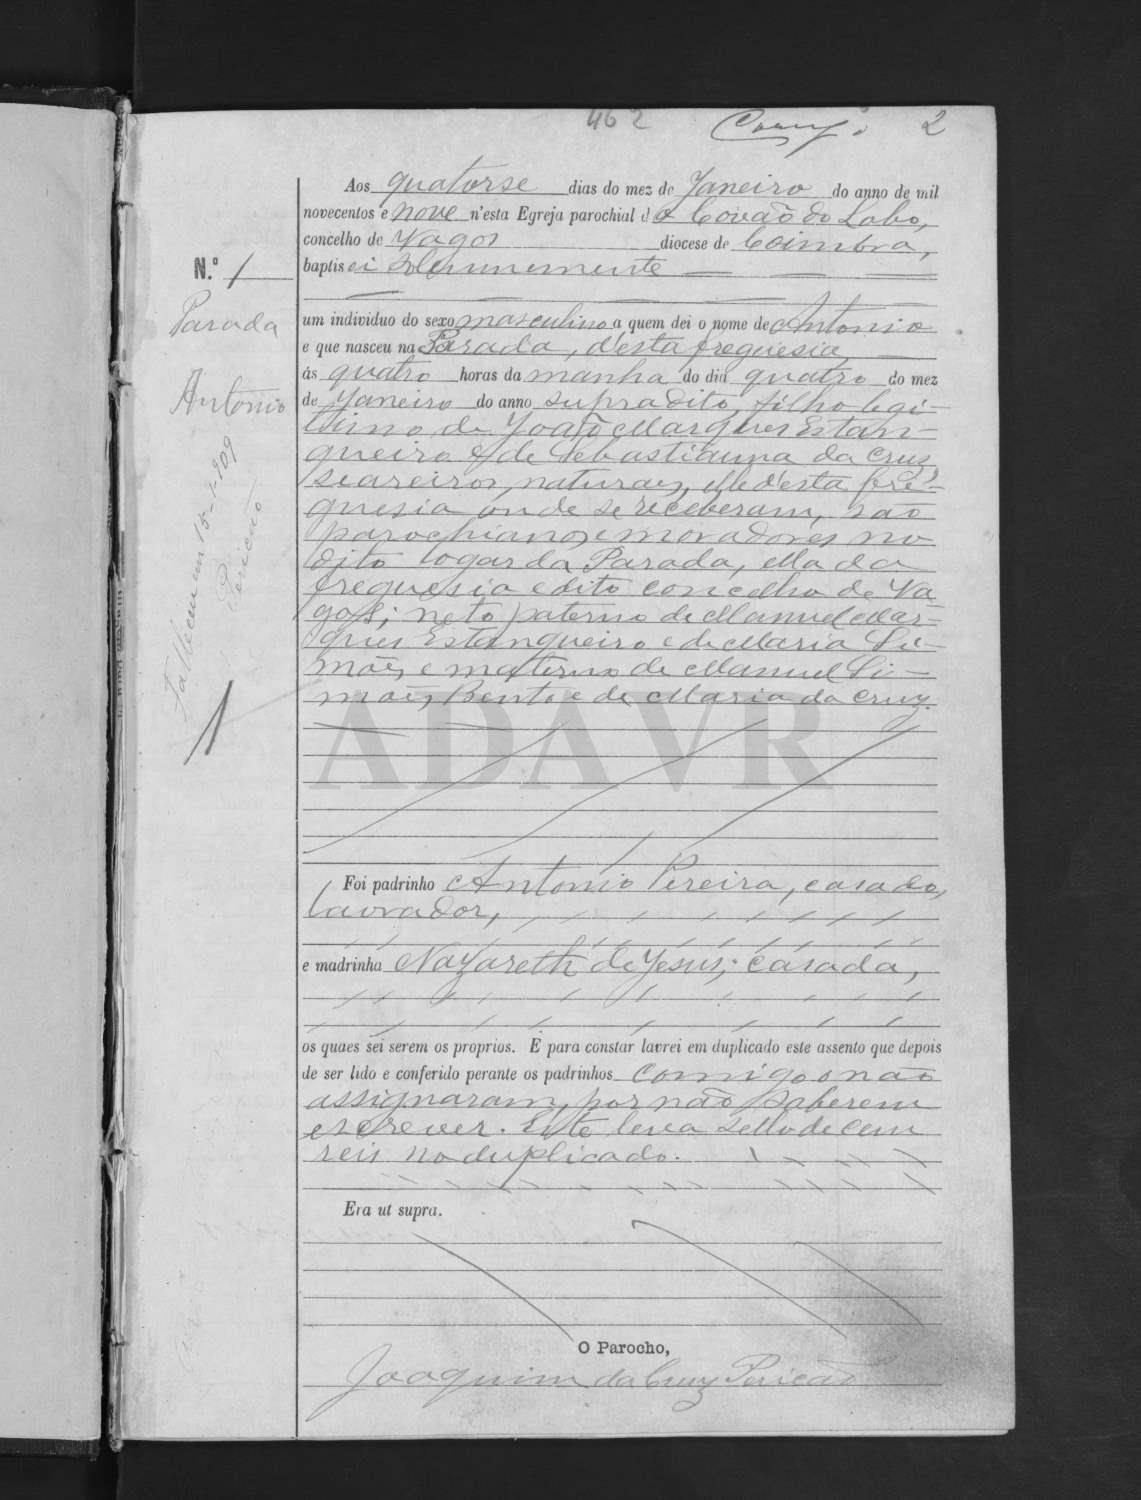 462
2
N.º 1
Parada
Antonio
Falleceu em 15-1-909
Pericão
Aos quatorse dias do mez de Janeiro do anno de mil
novecentos e nove n'esta Egreja parochial do Covão do Lobo,
concelho de Vagos diocese de Coimbra,
baptisei solemnemente
um individuo do sexo masculino a quem dei o nome de Antonio
e que nasceu na Parada, d'esta freguesia,
ás quatro horas da manha do dia quatro do mez
de Janeiro do anno supradito, filho legi-
timo de João Marques Estan-
queiro e de Sebastianna da Cruz,
seareiros, naturaes, elle d'esta fre-
guesia onde se receberam, são
parochianos e moradores no
dito logar da Parada, ella da
freguesia e dito concelho de Va-
gos; neto paterno de Manuel Mar-
ques Estanqueiro e de Maria Si-
mões, e materno de Manuel Si-
mões Bento e de Maria da Cruz.
ADAVR
Foi padrinho Antonio Pereira, casado,
lavrador,
e madrinha Nazareth de Jesus, casada,
os quaes sei serem os proprios. E para constar lavrei em duplicado este assento que depois
de ser lido e conferido perante os padrinhos comigo o não
assignaram, por não saberem
escrever. Este leva sello de cem
reis no duplicado.
Era ut supra.
O Parocho,
Joaquim da Cruz Pericão